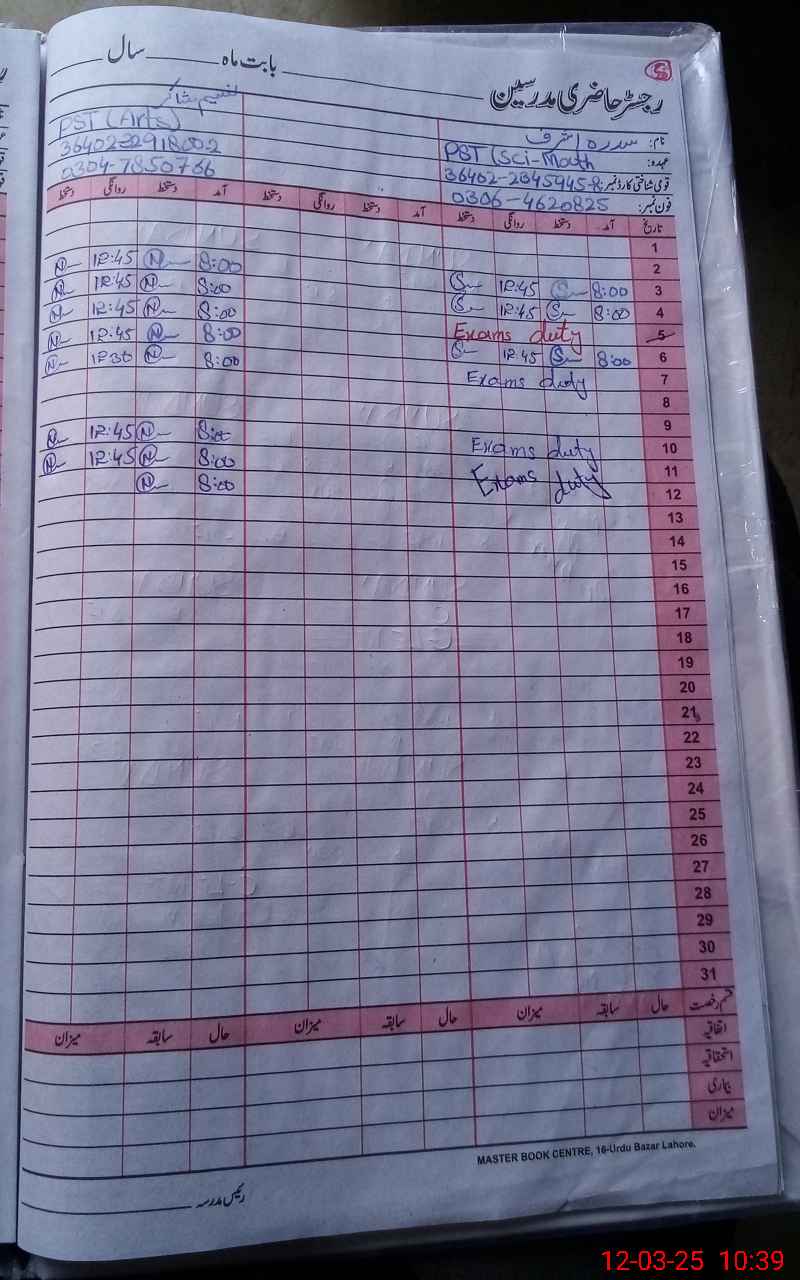 بابت ماہ ________ سال ________
رجسٹر حاضری مدرسین
نام: سدرہ اشرف
عہدہ: PST (Sci-Math
قومی شناختی کارڈ نمبر: 36402-2345945-8
فون نمبر: 0306-4620825
PST (Arts)
0304-7850766
تاریخ آمد دستخط روانگی دستخط آمد دستخط روانگی دستخط آمد دستخط روانگی دستخط
1
2
3 8:00 S 12:45 S 8:00 N 12:45 N
4 8:00 S 12:45 S 8:00 N 12:45 N
5 Exams duty 8:00 N 12:45 N
6 8:00 S 12:45 S 8:00 N 12:45 N
7 Exams duty 8:00 N 12:30 N
8
9
10 Exams duty 8:00 N 12:45 N
11 Exams duty 8:00 N 12:45 N
12 8:00 N
13
14
15
16
17
18
19
20
21
22
23
24
25
26
27
28
29
30
31
قسم رخصت حال سابقہ میزان حال سابقہ میزان حال سابقہ میزان
اتفاقیہ
استحقاقیہ
بیماری
میزان
MASTER BOOK CENTRE, 16-Urdu Bazar Lahore.
رئیس مدرسہ ________
12-03-25 10:39